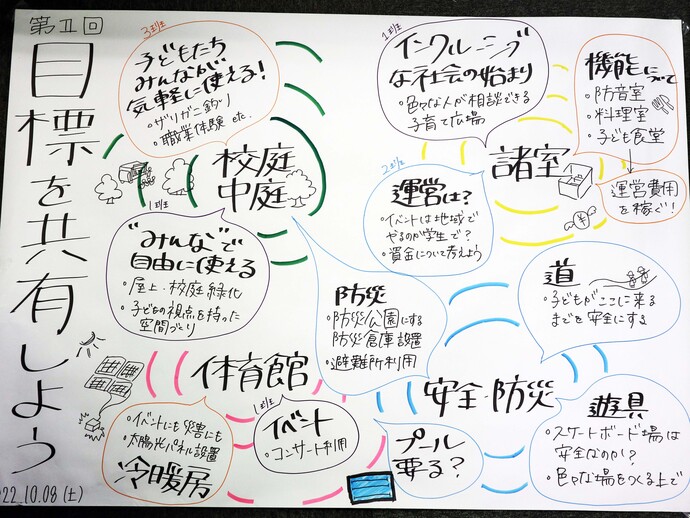 第Ⅱ回
目標を共有しよう
22.10.08(土)
3班
子どもたち
みんなが
気軽に使える!
・ザリガニ釣り
・職業体験 etc.
校庭
中庭
1班
"みんな"で
自由に使える
・屋上・校庭緑化
・子どもの視点を持った
空間づくり
1班
インクルーシブ
な社会の始まり
・色々な人が相談できる
子育て広場
機能について
・防音室
・料理室
・子ども食堂
運営費用
を稼ぐ!
諸室
2班
運営は?
・イベントは地域で
やるのか学生で?
・資金について考えよう
防災
・防災公園にする
防災倉庫設置
・避難所利用
道
・子どもがここに来る
までを安全にする
安全・防災
体育館
・イベントにも災害にも
・太陽光パネル設置
冷暖房
1班
イベント
・コンサート利用
プール
要る?
遊具
・スケートボード場は
安全なのか?
・色々な場をつくる上で